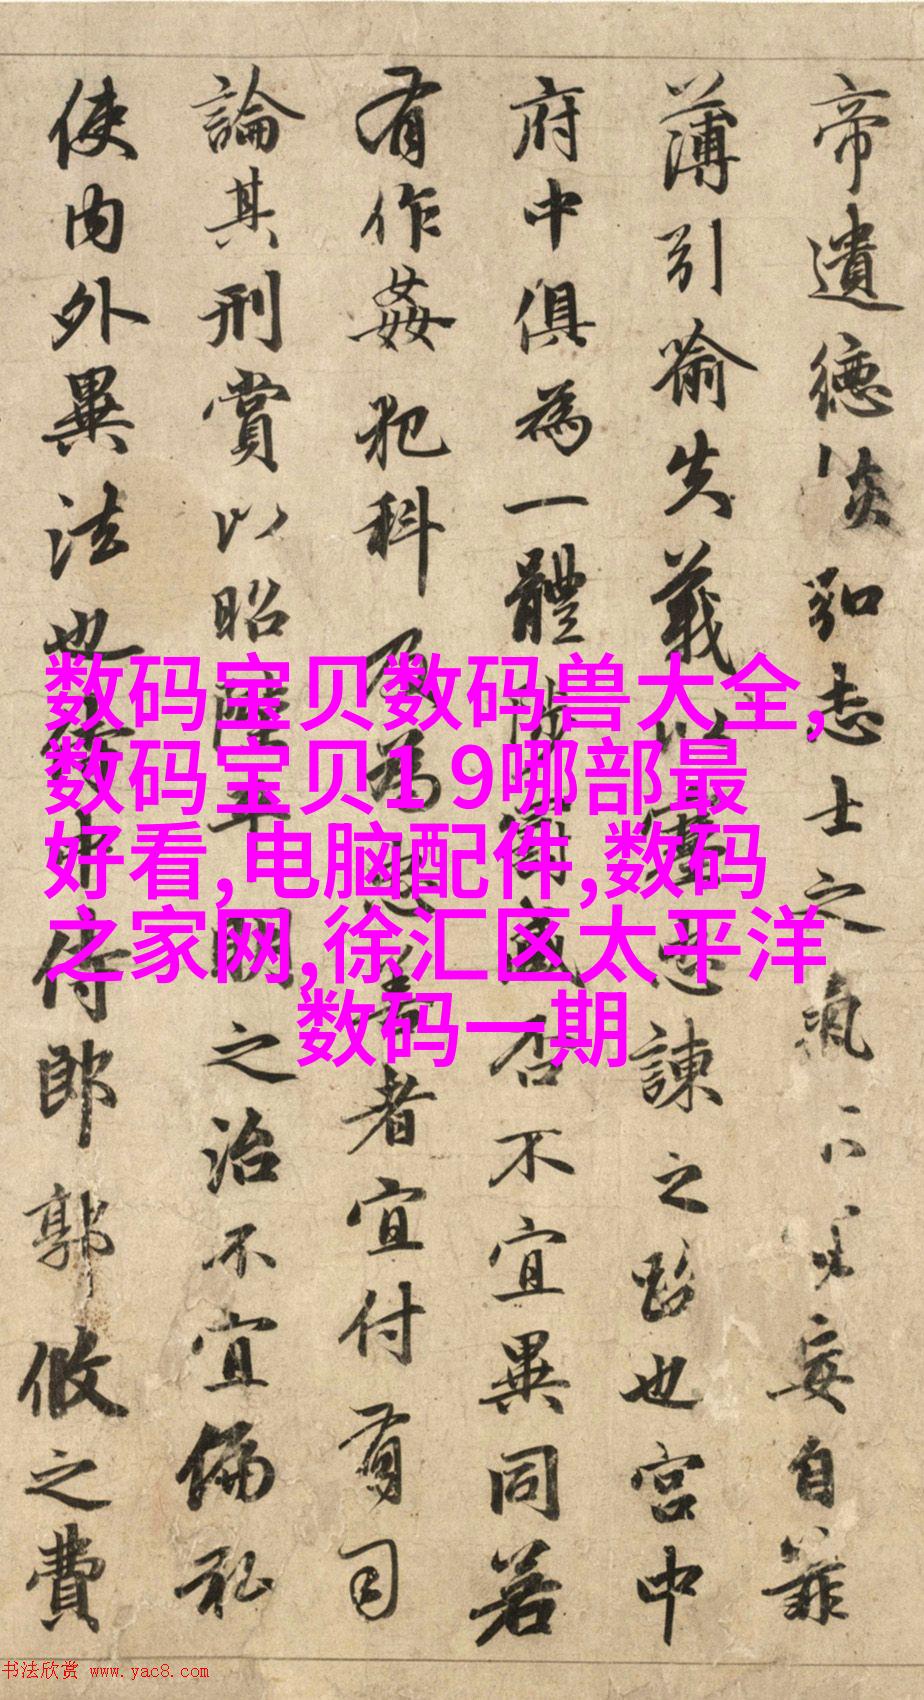 帝遺德恢弘志士之氣不妄自菲
薄引喻失義以塞忠諫之路也宮中
府中俱為一體陟罰臧否不宜異同若
有作姦犯科及為忠善者宜付有司
論其刑賞以昭陛平明之治不宜偏私
使內外異法也侍中侍郎郭攸之費
数码宝贝数码兽大全,
数码宝贝1 9哪部最
好看,电脑配件,数码
之家网,徐汇区太平洋
数码一期
书法欣赏 www.yac8.com